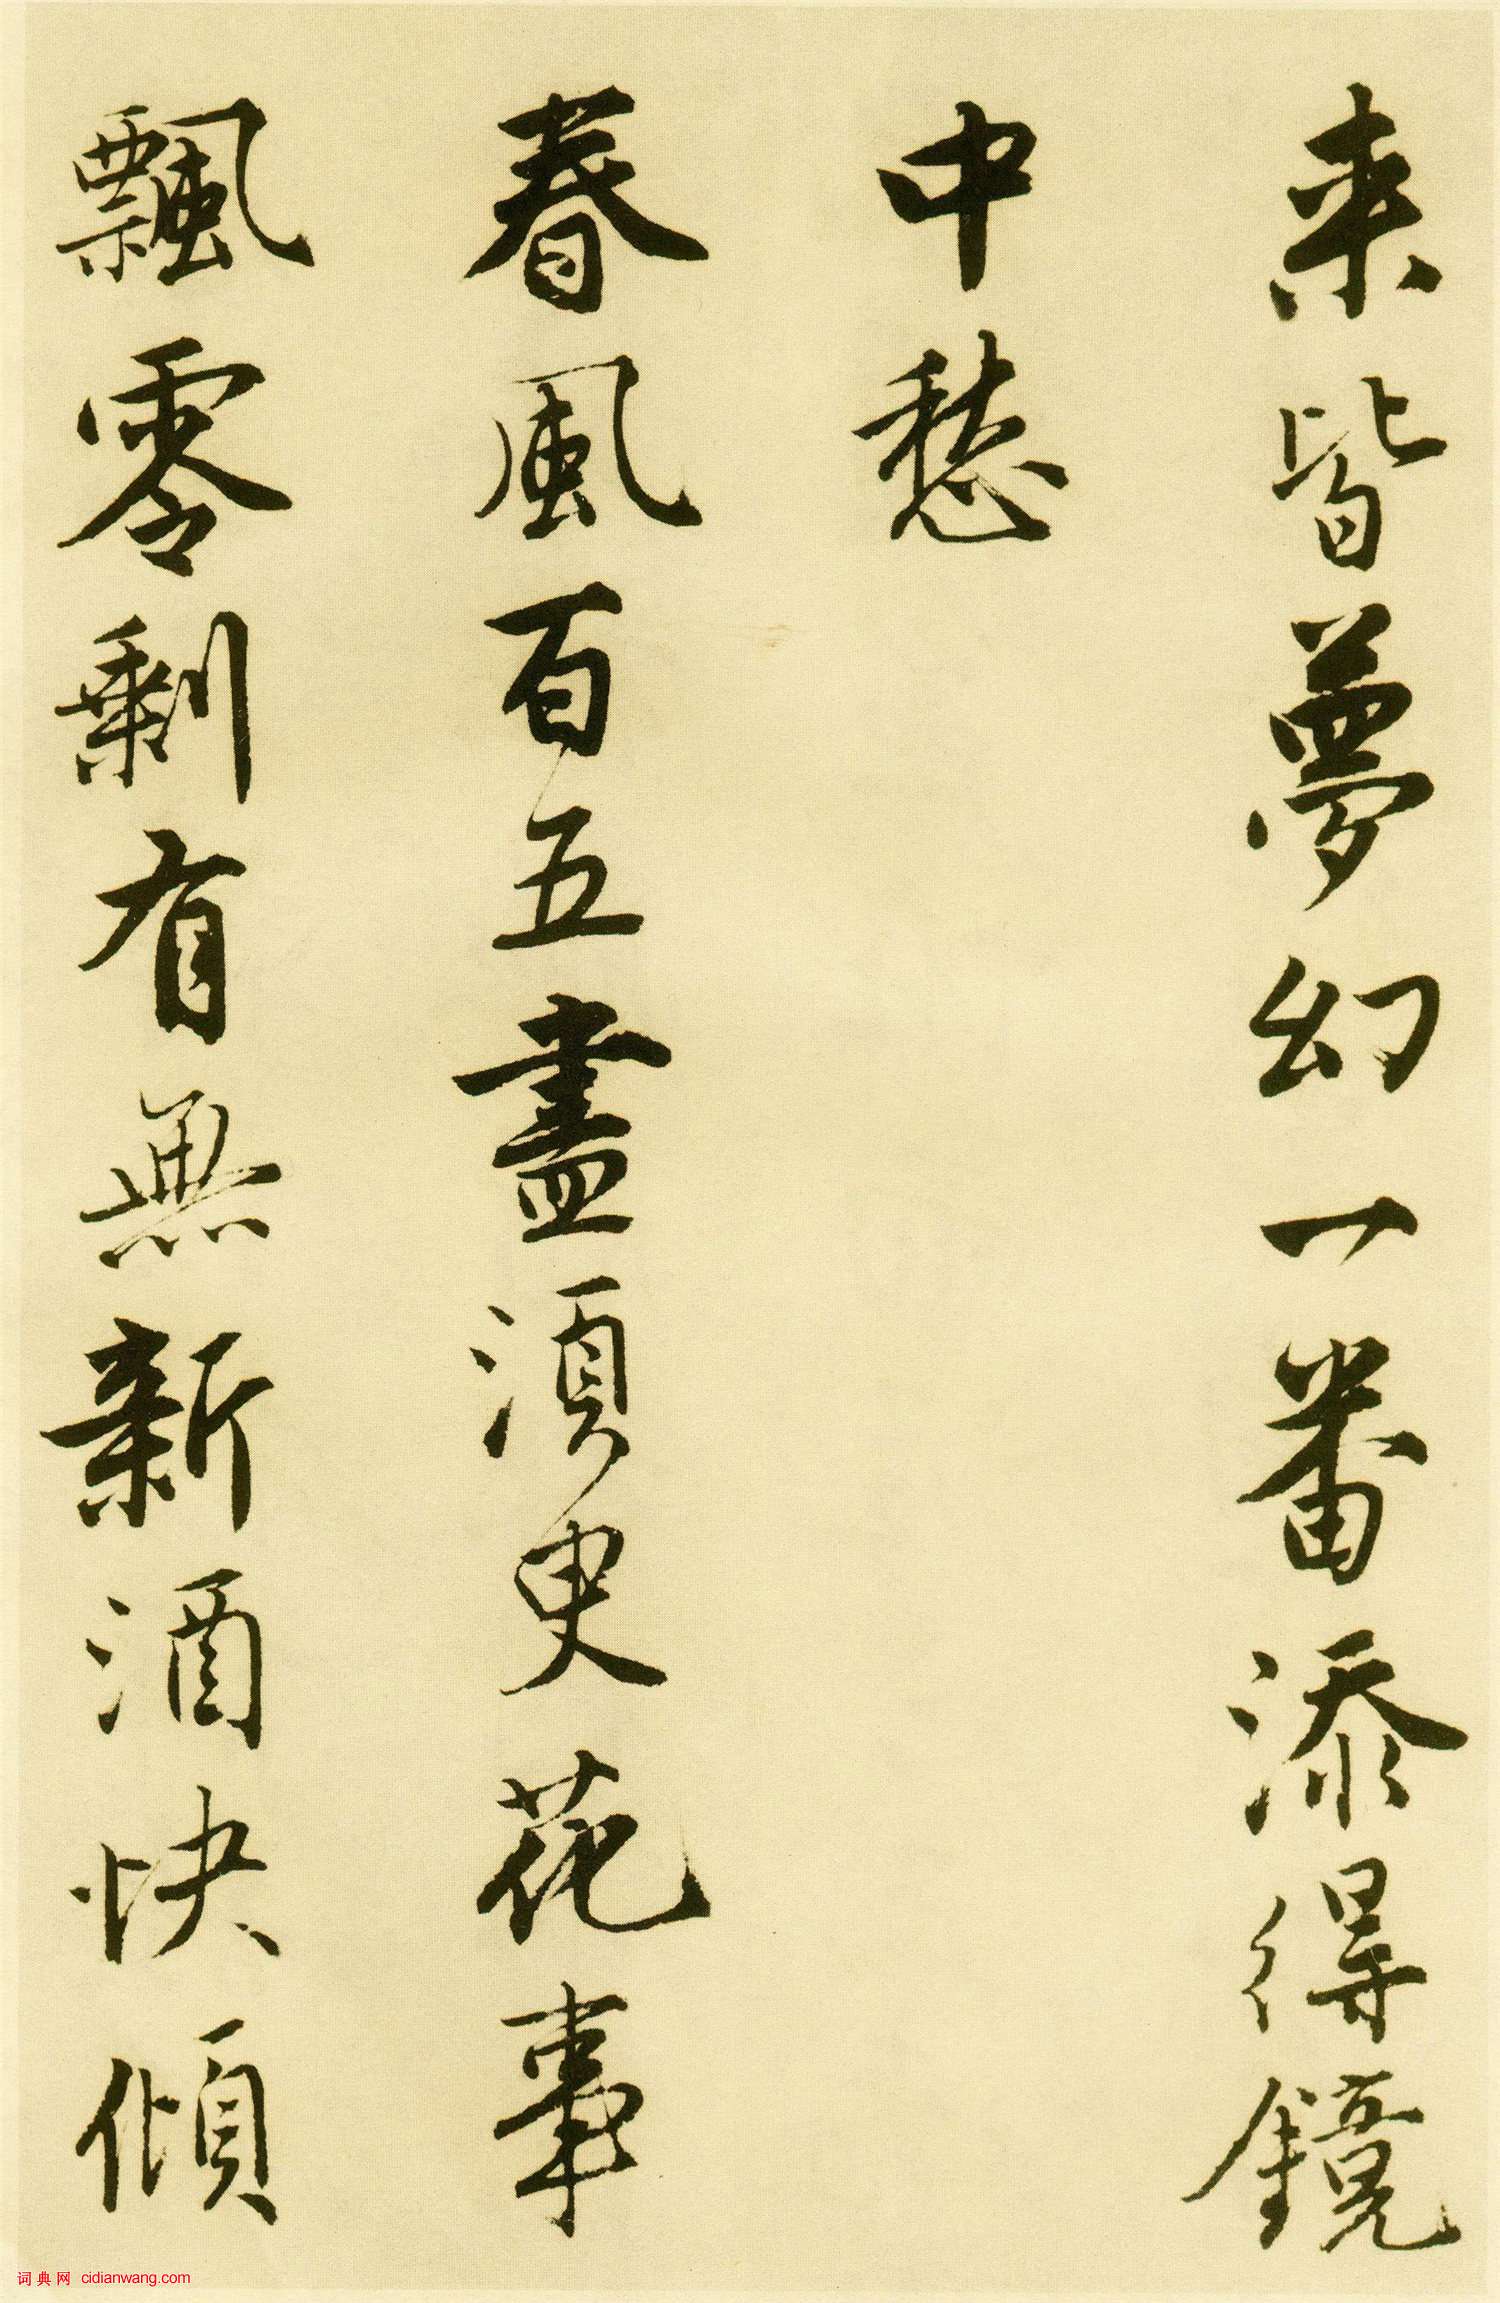 来皆夢幻一番添得鏡
中愁
春風百五盡須臾花事
飄零剩有無新酒快傾
词典网 cidianwang.com